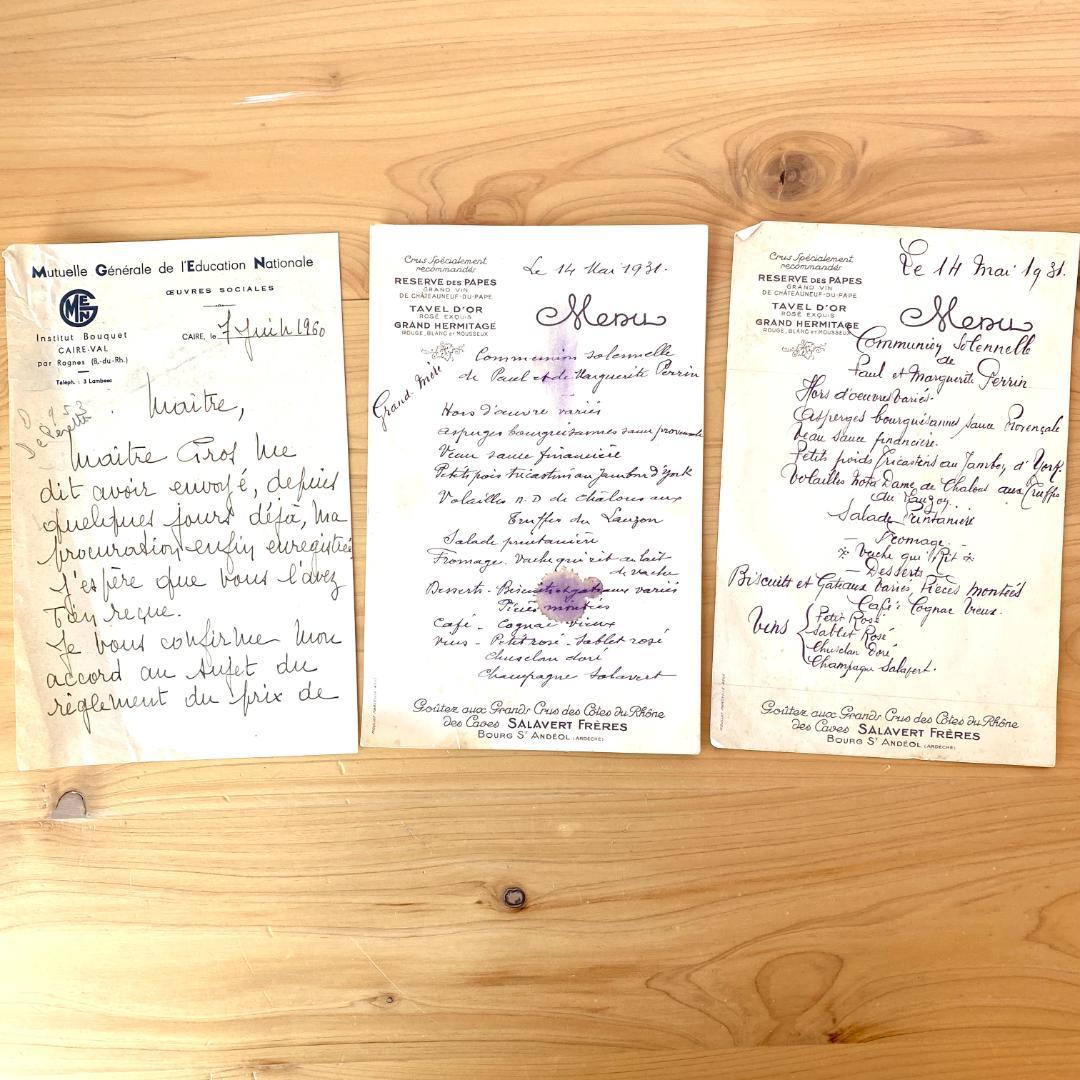 Mutuelle Générale de l'Education Nationale
ŒUVRES SOCIALES
MGEN
Institut Bouquet
CAIRE-VAL
par Rognes (B.-du-Rh.)
Téléph. : 3 Lambesc
CAIRE, le 7 Juin 1960
Maître,
Maître Gros me
dit avoir envoyé, depuis
quelques jours déjà, ma
procuration enfin enregistrée
J'espère que vous l'avez
bien reçue.
Je vous confirme mon
accord au sujet du
règlement du prix de
Crus Spécialement
recommandés
RESERVE DES PAPES
GRAND VIN
DE CHÂTEAUNEUF-DU-PAPE
TAVEL D'OR
ROSÉ EXQUIS
GRAND HERMITAGE
ROUGE, BLANC ET MOUSSEUX
Le 14 Mai 1931.
Menu
Grand-Mère
Communion solennelle
de Paul et de Marguerite Perrin
Hors d'oeuvre variés
Asperges bourguisannes sauce provençale
Veau sauce financière
Petits pois tricastins au Jambon d'York
Volailles N. D de Chalons aux
Truffes du Lauzon
Salade printanière
Fromage. Vache qui rit au lait
de vache
Desserts - Biscuits et gateaux variés
Pièces montées
Café - Cognac vieux
vins - Petit rosé - Sablet rosé
Chusclan doré
Champagne Salavert
Goûtez aux Grands Crus des Côtes du Rhône
des Caves SALAVERT FRÈRES
BOURG ST ANDÉOL (ARDÈCHE)
Crus Spécialement
recommandés
RESERVE DES PAPES
GRAND VIN
DE CHÂTEAUNEUF-DU-PAPE
TAVEL D'OR
ROSÉ EXQUIS
GRAND HERMITAGE
ROUGE, BLANC ET MOUSSEUX
Le 14 Mai 1931.
Menu
Communion Solennelle
de
Paul et Marguerite Perrin
Hors d'oeuvres Variés.
Asperges bourguisannes sauce Provençale
Veau sauce financière.
Petits poids Tricastens au Jambon d'York
Volailles Notre Dame de Chalons aux Truffes
du Lauzon.
Salade Printanière
- Fromage. -
Vache qui Rit
- Desserts -
Biscuits et Gâteaux Variés, Pièces montées
Café : Cognac Vieux.
Vins { Petit Rosé
Sablet Rosé
Chusclan doré
Champagne Salavert.
Goûtez aux Grands Crus des Côtes du Rhône
des Caves SALAVERT FRÈRES
BOURG ST ANDÉOL (ARDÈCHE)